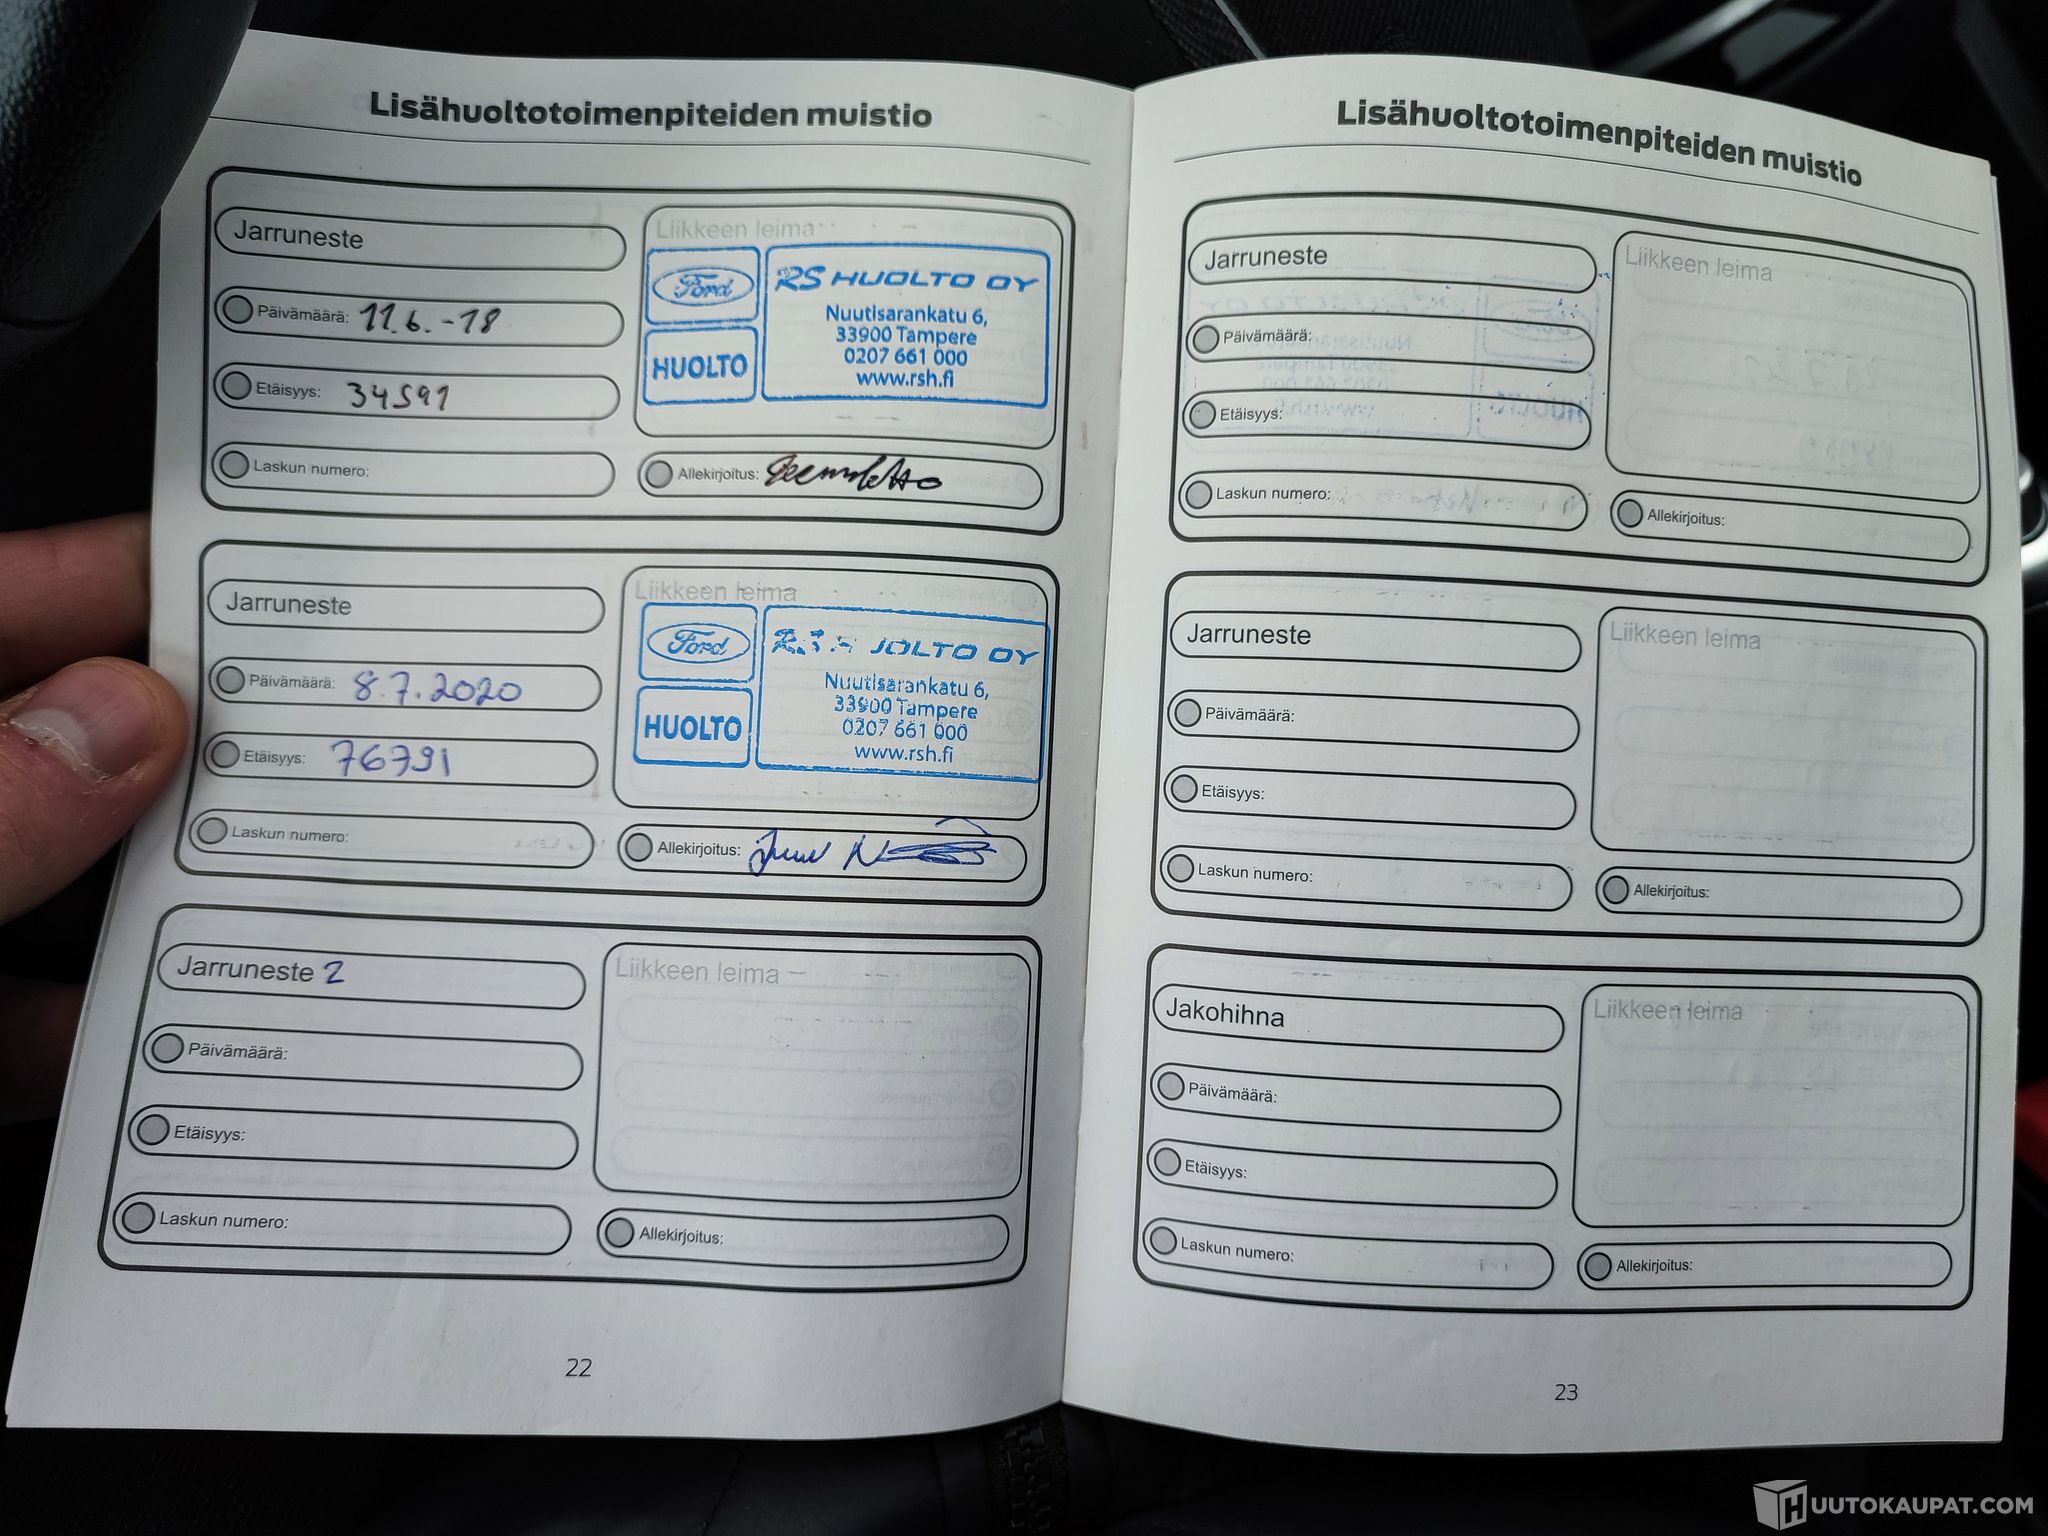 Lisähuoltotoimenpiteiden muistio
Jarruneste
Päivämäärä: 11.6.-18
Etäisyys: 34591
Laskun numero:
Liikkeen leima
Ford
HUOLTO
RS HUOLTO OY
Nuutisarankatu 6,
33900 Tampere
0207 661 000
www.rsh.fi
Allekirjoitus:
Jarruneste
Päivämäärä: 8.7.2020
Etäisyys: 76791
Laskun numero:
Liikkeen leima
Ford
HUOLTO
RS HUOLTO OY
Nuutisarankatu 6,
33900 Tampere
0207 661 000
www.rsh.fi
Allekirjoitus:
Jarruneste 2
Päivämäärä:
Etäisyys:
Laskun numero:
Liikkeen leima
Allekirjoitus:
22
Lisähuoltotoimenpiteiden muistio
Jarruneste
Päivämäärä:
Etäisyys:
Laskun numero:
Liikkeen leima
Allekirjoitus:
Jarruneste
Päivämäärä:
Etäisyys:
Laskun numero:
Liikkeen leima
Allekirjoitus:
Jakohihna
Päivämäärä:
Etäisyys:
Laskun numero:
Liikkeen leima
Allekirjoitus:
23
HUUTOKAUPAT.COM